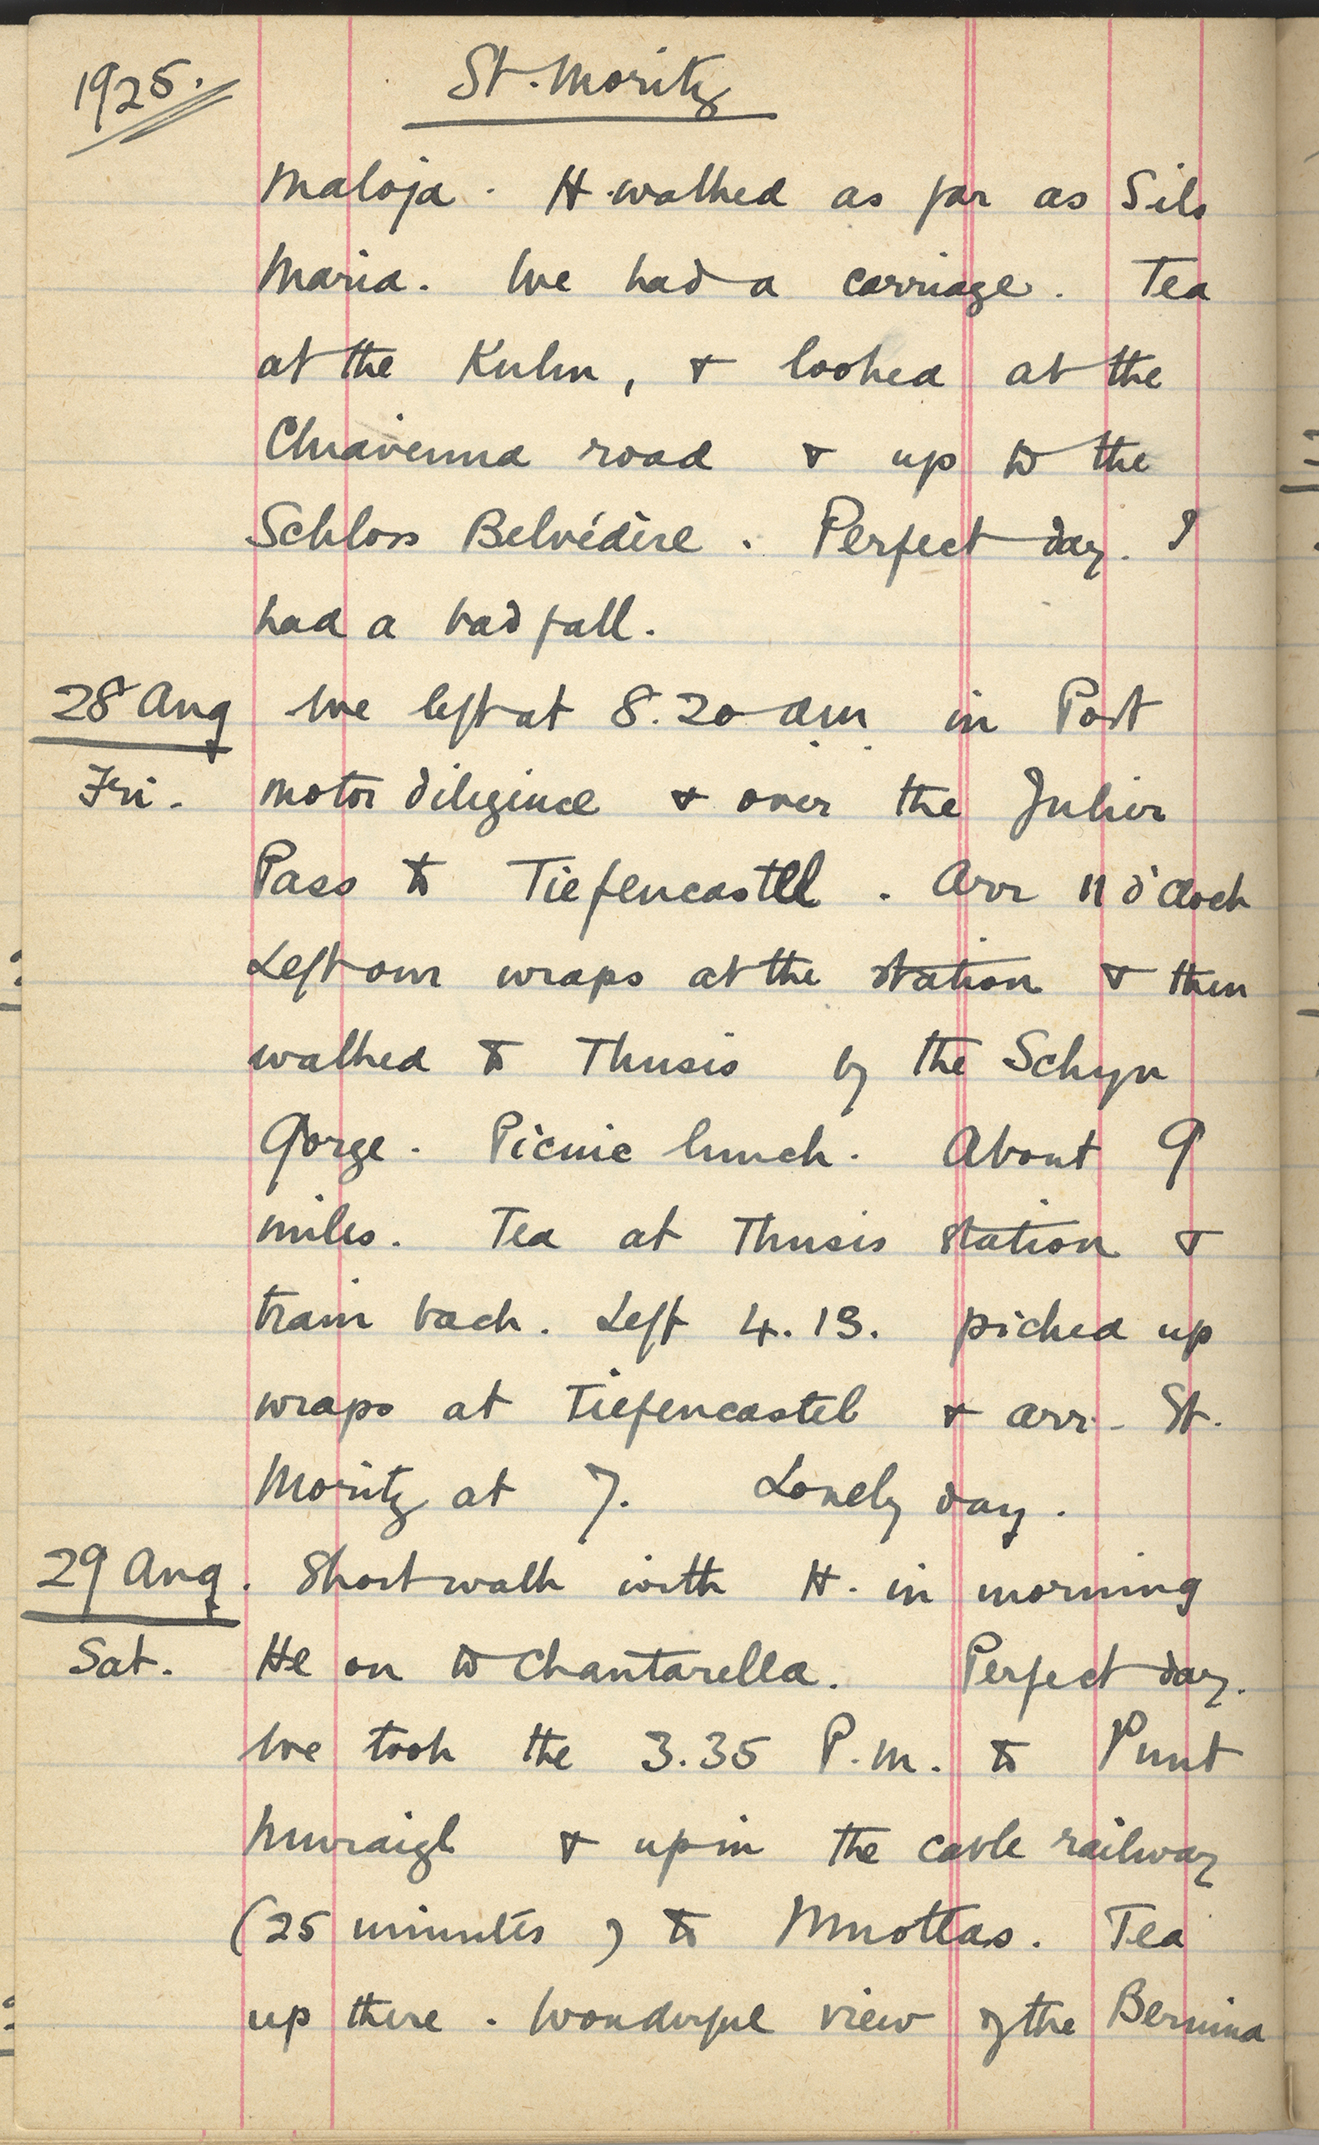 1925.
St. Moritz
Maloja. H. walked as far as Sils
Maria. We had a carriage. Tea
at the Kulm, & looked at the
Chiavenna road & up to the
Schloss Belvédère. Perfect day. I
had a bad fall.
28 Aug We left at 8.20 am in Post
Fri. motor diligence & over the Julier
Pass to Tiefencastel. Arr 11 o'clock
Left our wraps at the station & then
walked to Thusis by the Schyn
Gorge. Picnic lunch. About 9
miles. Tea at Thusis station &
train back. Left 4.13. picked up
wraps at Tiefencastel & arr. St.
Moritz at 7. Lovely day.
29 Aug. Short walk with H. in morning
Sat. He on to Chantarella. Perfect day.
We took the 3.35 P.m. to Punt
Muraigl & up in the cable railway
(25 minutes) to Muottas. Tea
up there. Wonderful view of the Bernina